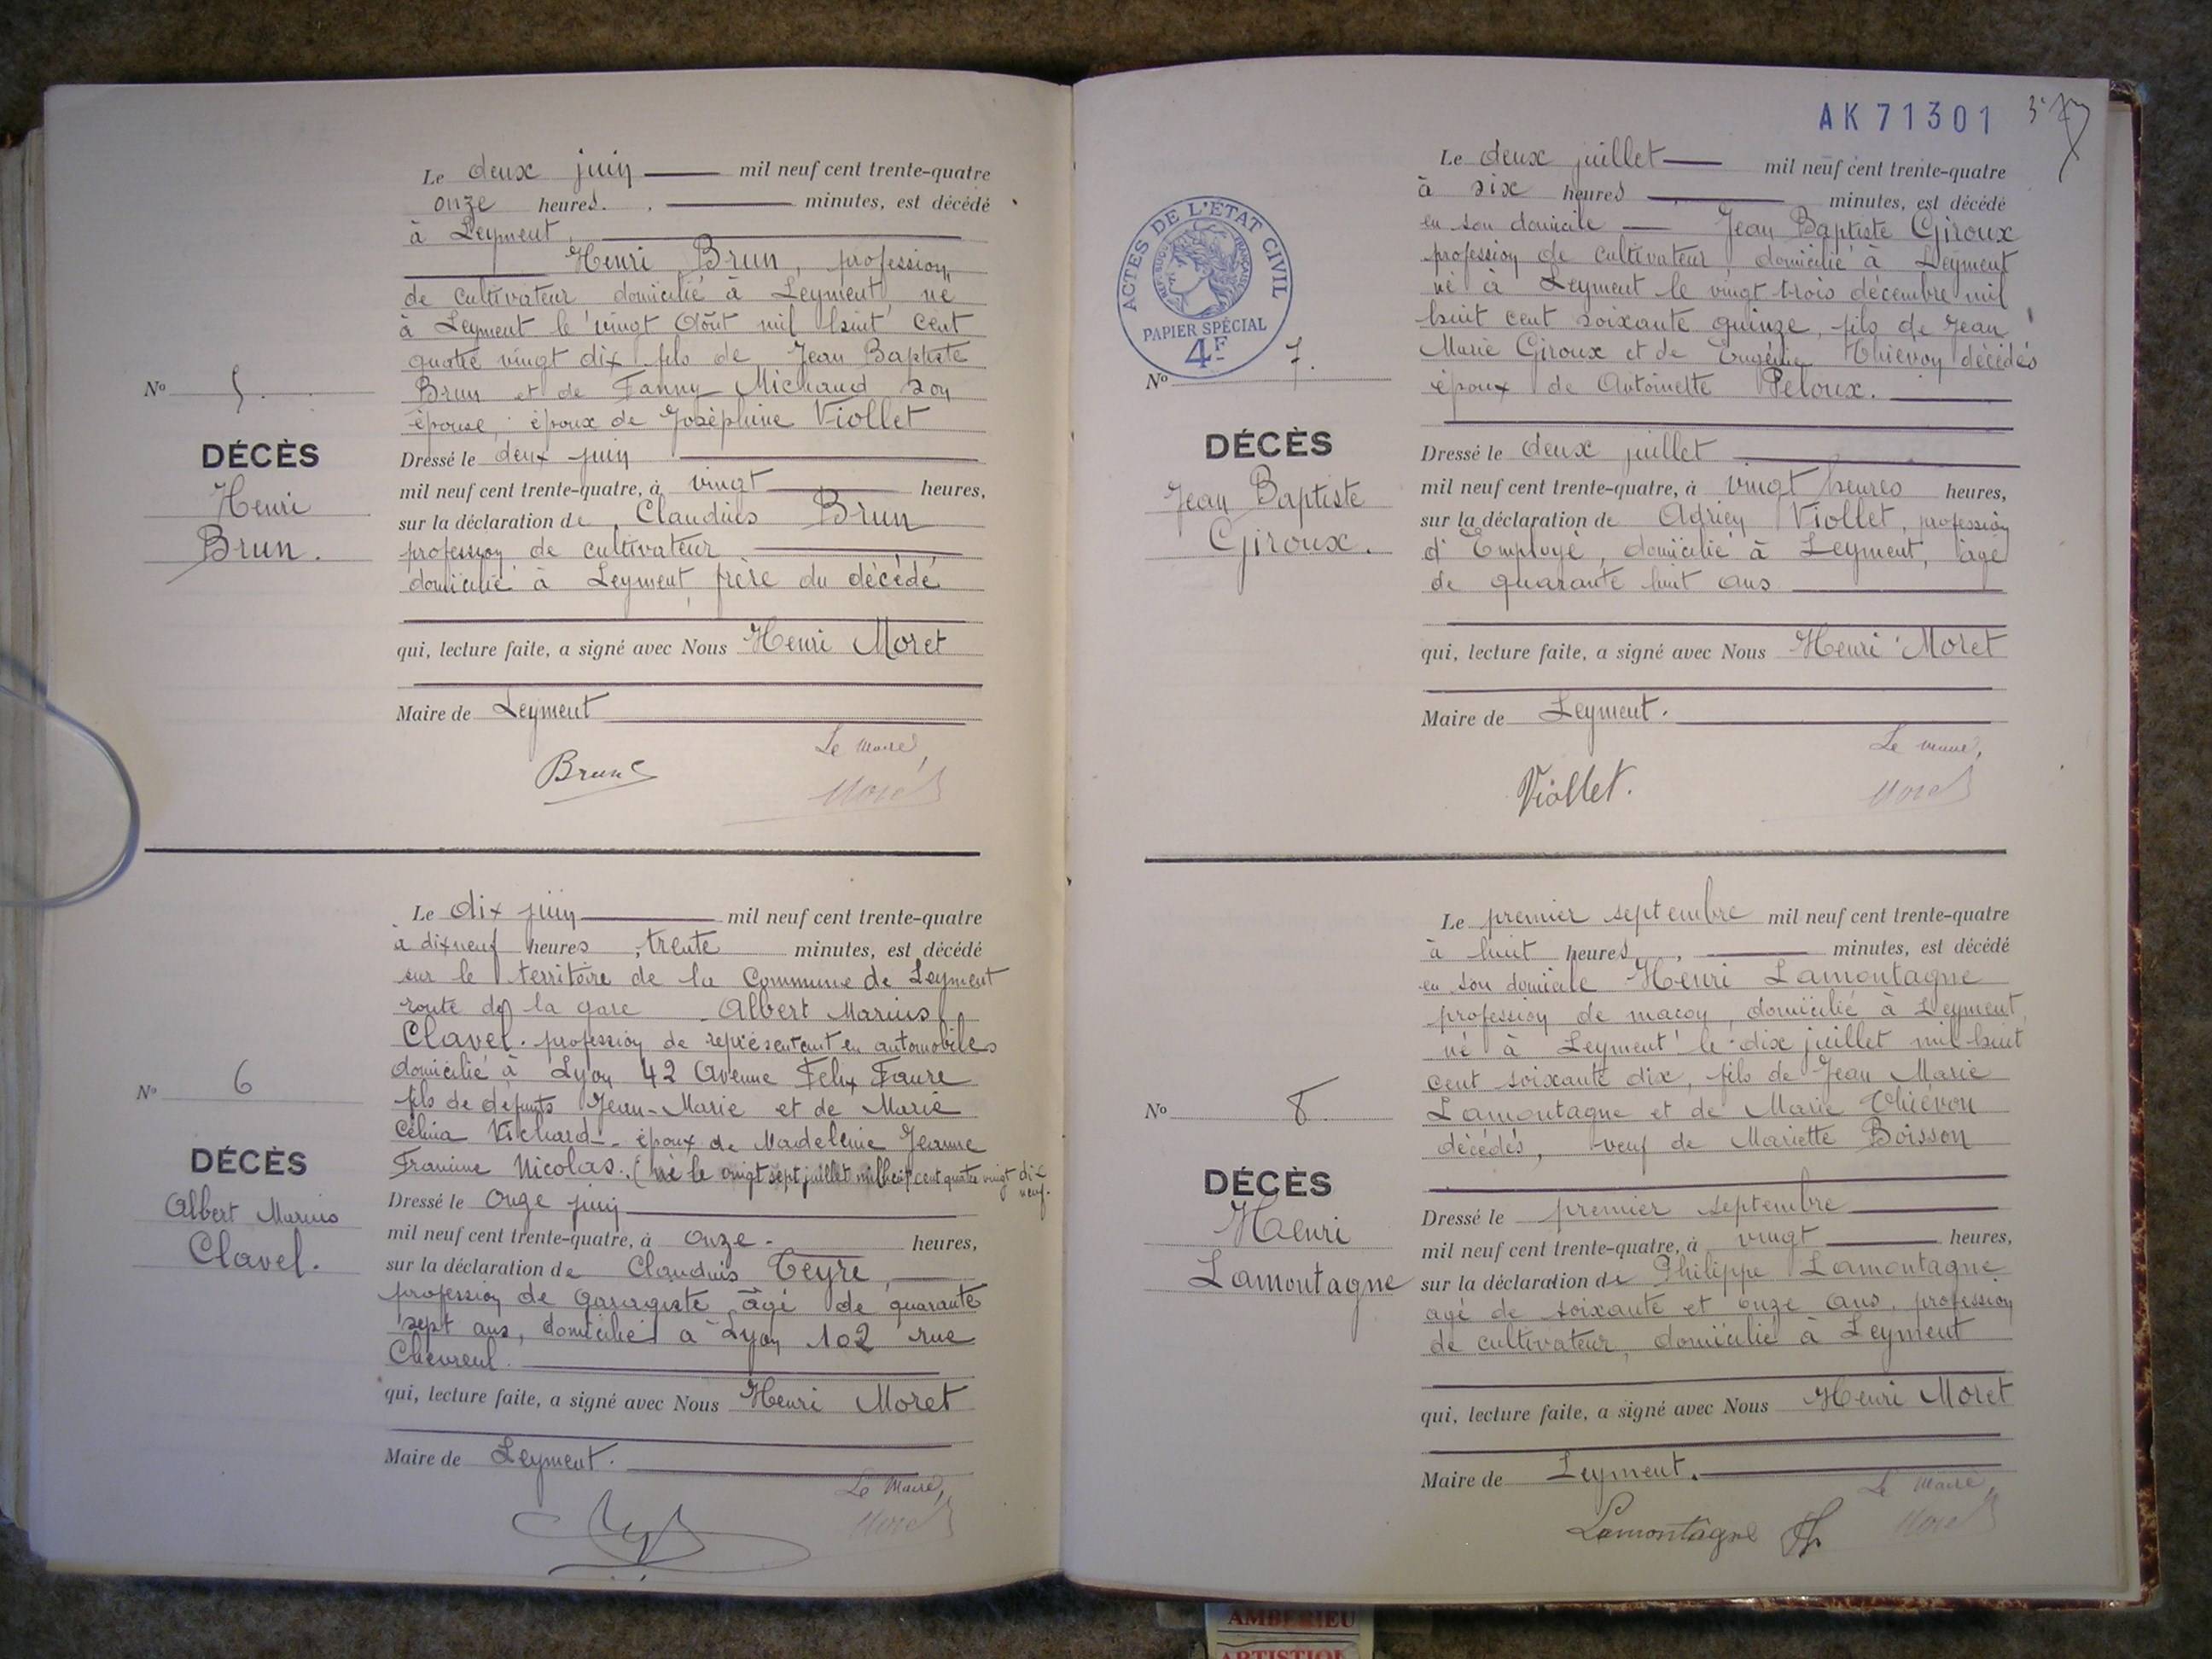 Le deux juin mil neuf cent trente-quatre
onze heures. , minutes, est décédé
à Leyment,
Henri Brun, profession
de cultivateur domicilié à Leyment, né
à Leyment le vingt Août mil huit cent
quatre vingt dix fils de Jean Baptiste
Brun et de Fanny Michaud son
épouse, époux de Joséphine Viollet
Nº 5.
DÉCÈS
Henri
Brun.
Dressé le deux juin
mil neuf cent trente-quatre, à vingt heures,
sur la déclaration de Claudius Brun
profession de cultivateur
domicilié à Leyment, frère du décédé
qui, lecture faite, a signé avec Nous Henri Moret
Maire de Leyment
Le Maire,
Brun
Moret
Le dix juin mil neuf cent trente-quatre
à dix neuf heures , trente minutes, est décédé
sur le territoire de la Commune de Leyment
route de la gare Albert Marius
Clavel. profession de représentant en automobiles
domicilié à Lyon 42 Avenue Felix Faure
fils de défunts Jean-Marie et de Marie
Célina Vichard - époux de Madeleine Jeanne
Francine Nicolas. (né le vingt sept juillet mil huit cent quatre vingt dix
neuf.
Nº 6
DÉCÈS
Albert Marius
Clavel.
Dressé le onze juin
mil neuf cent trente-quatre, à onze - heures,
sur la déclaration de Claudius Teyre,
profession de garagiste âgé de quarante
sept ans, domicilié à Lyon 102 rue
Chevreul.
qui, lecture faite, a signé avec Nous Henri Moret
Maire de Leyment.
Le Maire,
Moret
AK71301
Le deux juillet mil neuf cent trente-quatre
à six heures minutes, est décédé
en son domicile Jean Baptiste Giroux
profession de cultivateur, domicilié à Leyment
né à Leyment le vingt trois décembre mil
huit cent soixante quinze, fils de Jean
Marie Giroux et de Eugénie Thiévon décédés
époux de Antoinette Peloux.
ACTES DE L'ÉTAT CIVIL
RÉPUBLIQUE FRANÇAISE
PAPIER SPÉCIAL
4F
Nº 7.
DÉCÈS
Jean Baptiste
Giroux.
Dressé le deux juillet
mil neuf cent trente-quatre, à vingt heures heures,
sur la déclaration de Adrien Viollet, profession
d'Employé, domicilié à Leyment, âgé
de quarante huit ans
qui, lecture faite, a signé avec Nous Henri Moret
Maire de Leyment.
Le maire,
Viollet.
Moret
Le premier septembre mil neuf cent trente-quatre
à huit heures , minutes, est décédé
en son domicile Henri Lamontagne
profession de maçon, domicilié à Leyment,
né à Leyment le dix juillet mil huit
cent soixante dix, fils de Jean Marie
Lamontagne et de Marie Thiévon
décédés, veuf de Mariette Boisson
Nº 8
DÉCÈS
Henri
Lamontagne
Dressé le premier septembre
mil neuf cent trente-quatre, à vingt heures,
sur la déclaration de Philippe Lamontagne
agé de soixante et onze ans, profession
de cultivateur, domicilié à Leyment
qui, lecture faite, a signé avec Nous Henri Moret
Maire de Leyment.
Le Maire,
Lamontagne Ph
Moret
AMBERIEU